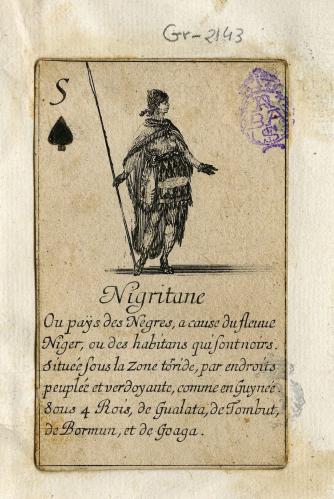 Gr-2143
S
Nigritane
Ou païs des Negres, a cause du fleuue
Niger, ou des habitans qui sont noirs.
située sous la Zone tôride, par endroits
peuplée et verdoyante, comme en Guynée.
Sous 4 Rois, de Gualata, de Tombut,
de Bormun, et de Goaga.